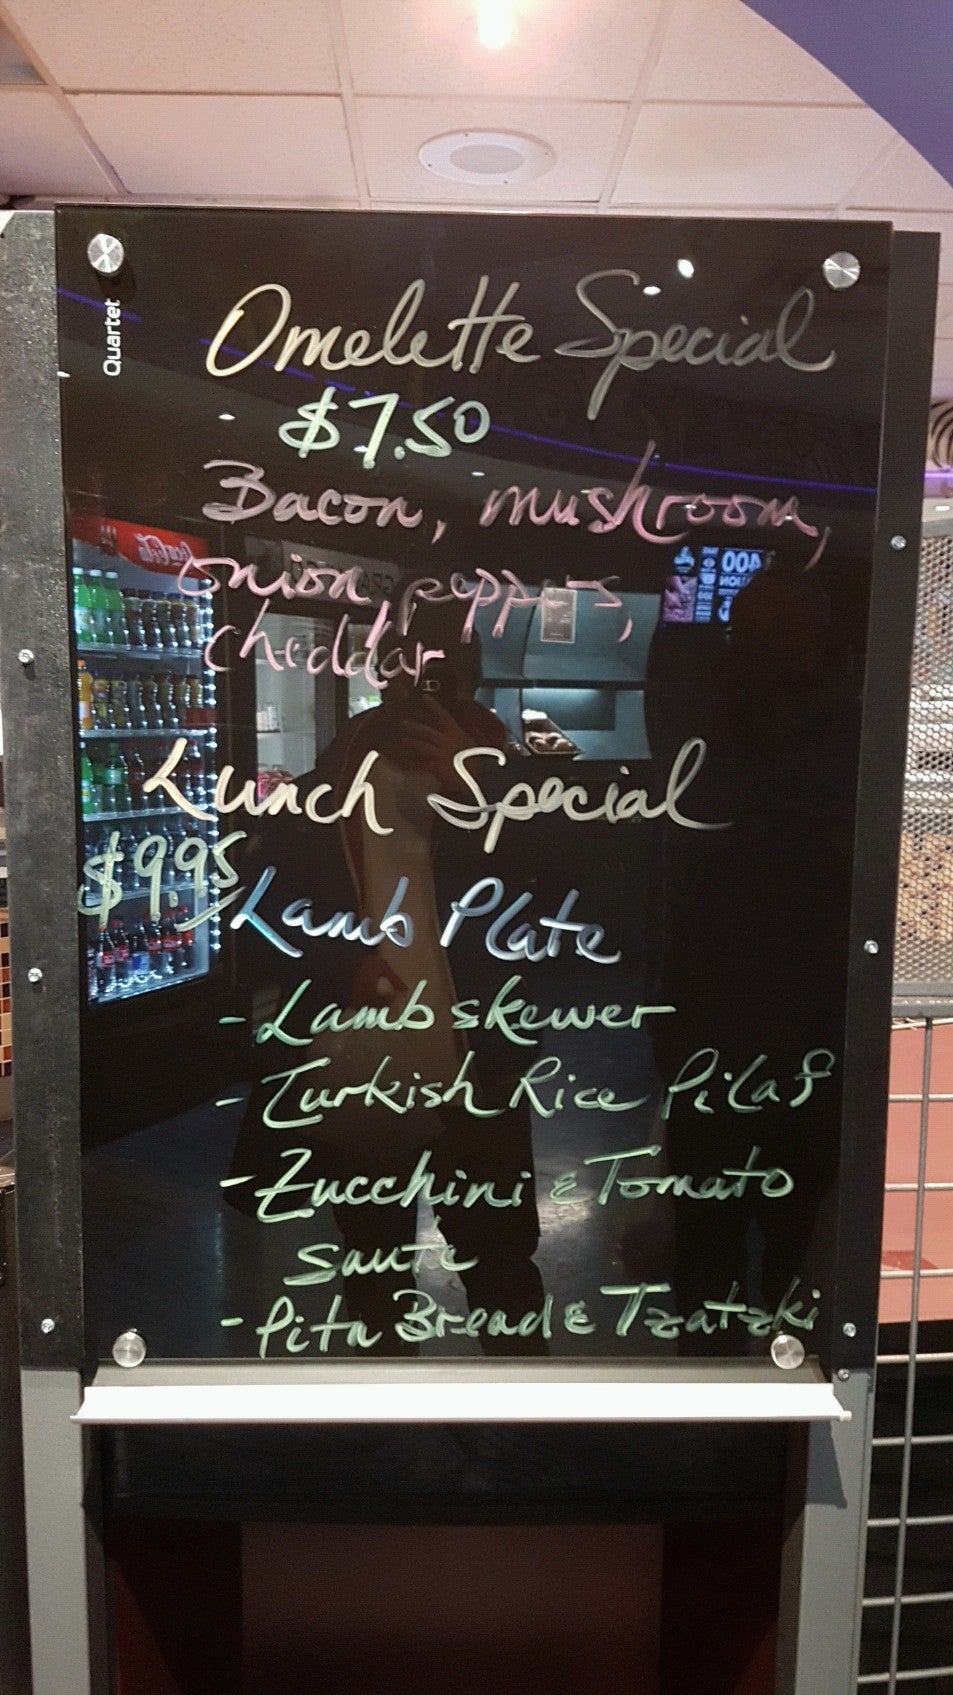 Quartet
Omelette Special
$7.50
Bacon, mushroom,
onion, peppers,
cheddar
Lunch Special
$9.95
Lamb Plate
- Lamb skewer
- Turkish Rice Pilaf
- Zucchini & Tomato
saute
- Pita Bread & Tzatzki
Coca-Cola
400